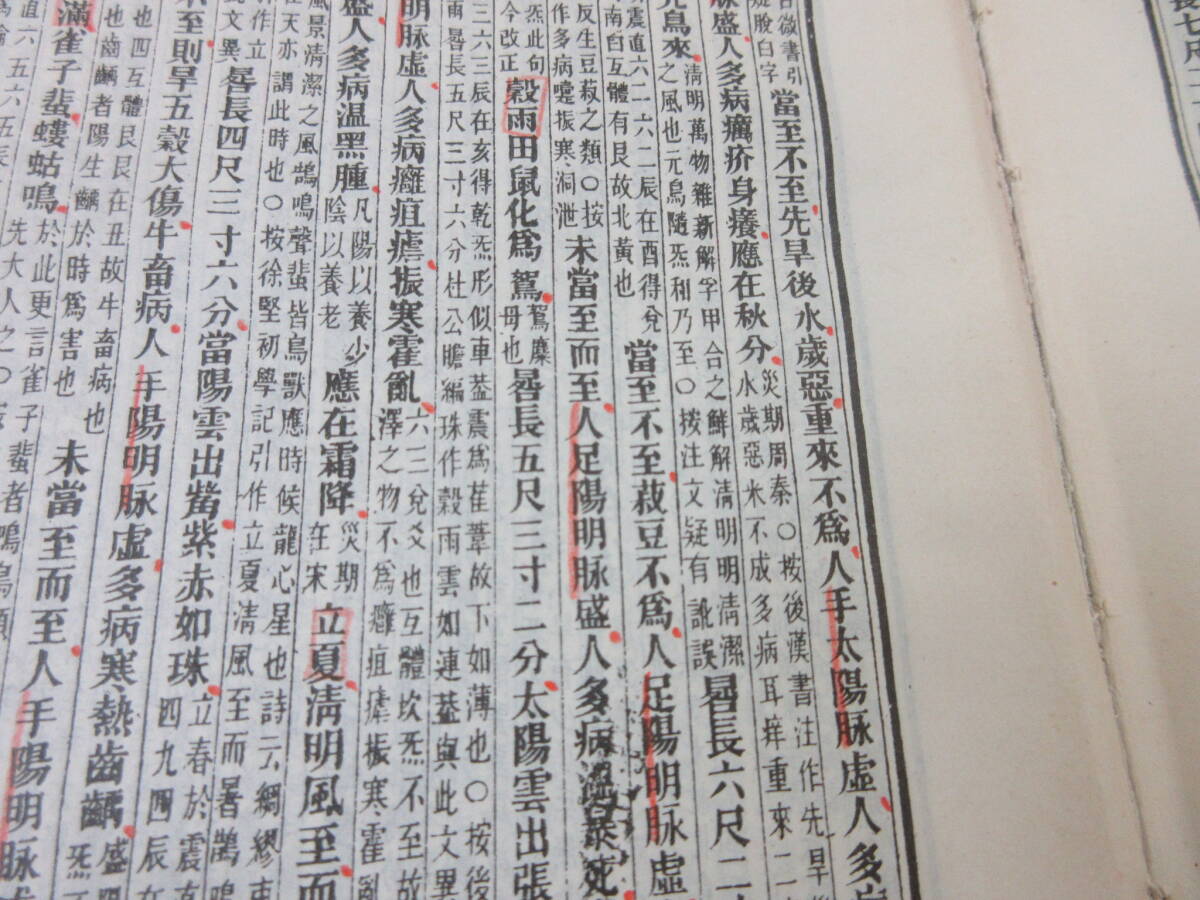 當至不至先旱後水歲惡重來不為人手太陽脉虛人多
脉盛人多病癘疥身癢應在秋分
災期周秦○按後漢書注作先旱
水歲惡米不成多病耳痒重來二
元鳥來
清明萬物雜新解孚甲合之鮮解清明明清潔
之風也元鳥隨炁和乃至○按注文疑有訛誤
晷長六尺二
震直六二六二辰在酉得兌
南白互體有艮故北黃也
當至不至菽豆不為人足陽明脉虛
反生豆菽之類○按
作多病嚏振寒洞泄
未當至而至人足陽明脉盛人多病溫暴死
炁此句
今改正
穀雨田鼠化為鴽
鴽䴢
母也
晷長五尺三寸二分太陽雲出張
三六三辰在亥得乾炁形似車葢震為萑葦故下如薄也○按後
雨晷長五尺三寸六分杜公瞻編珠作穀雨雲如連葢與此文異
明脉虛人多病癰疽瘧振寒霍亂
六三兌爻也互體坎炁不至故
澤之物不為癰疽瘧振寒霍亂
盛人多病溫黑腫
凡陽以養少
陰以養老
應在霜降
災期
在宋
立夏清明風至而
風景清潔之風鵠鳴聲蜚皆鳥獸應時候龍心星也詩云綢繆束
在天亦謂此時也○按徐堅初學記引作立夏清風至而暑鵲鳴
作立
文異
晷長四尺三寸六分當陽雲出觜紫赤如珠
立春於震直
四九四辰在
不至則旱五穀大傷牛畜病人手陽明脉虛多病寒熱齒齲
盛陽
炁
也四互體艮艮在丑故牛畜病也
也齒齲者陽生齲於時為害也
未當至而至人手陽明脉
滿雀子蜚螻蛄鳴
於此更言雀子蜚者鳴鳥類
先大人之○
直六五六五辰